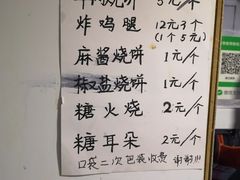 炸鸡腿 12元3个
(1个5元)
麻酱烧饼 1元/个
椒盐烧饼 1元/个
糖火烧 2元/个
糖耳朵 2元/个
口袋二次包装收费 谢谢!!!